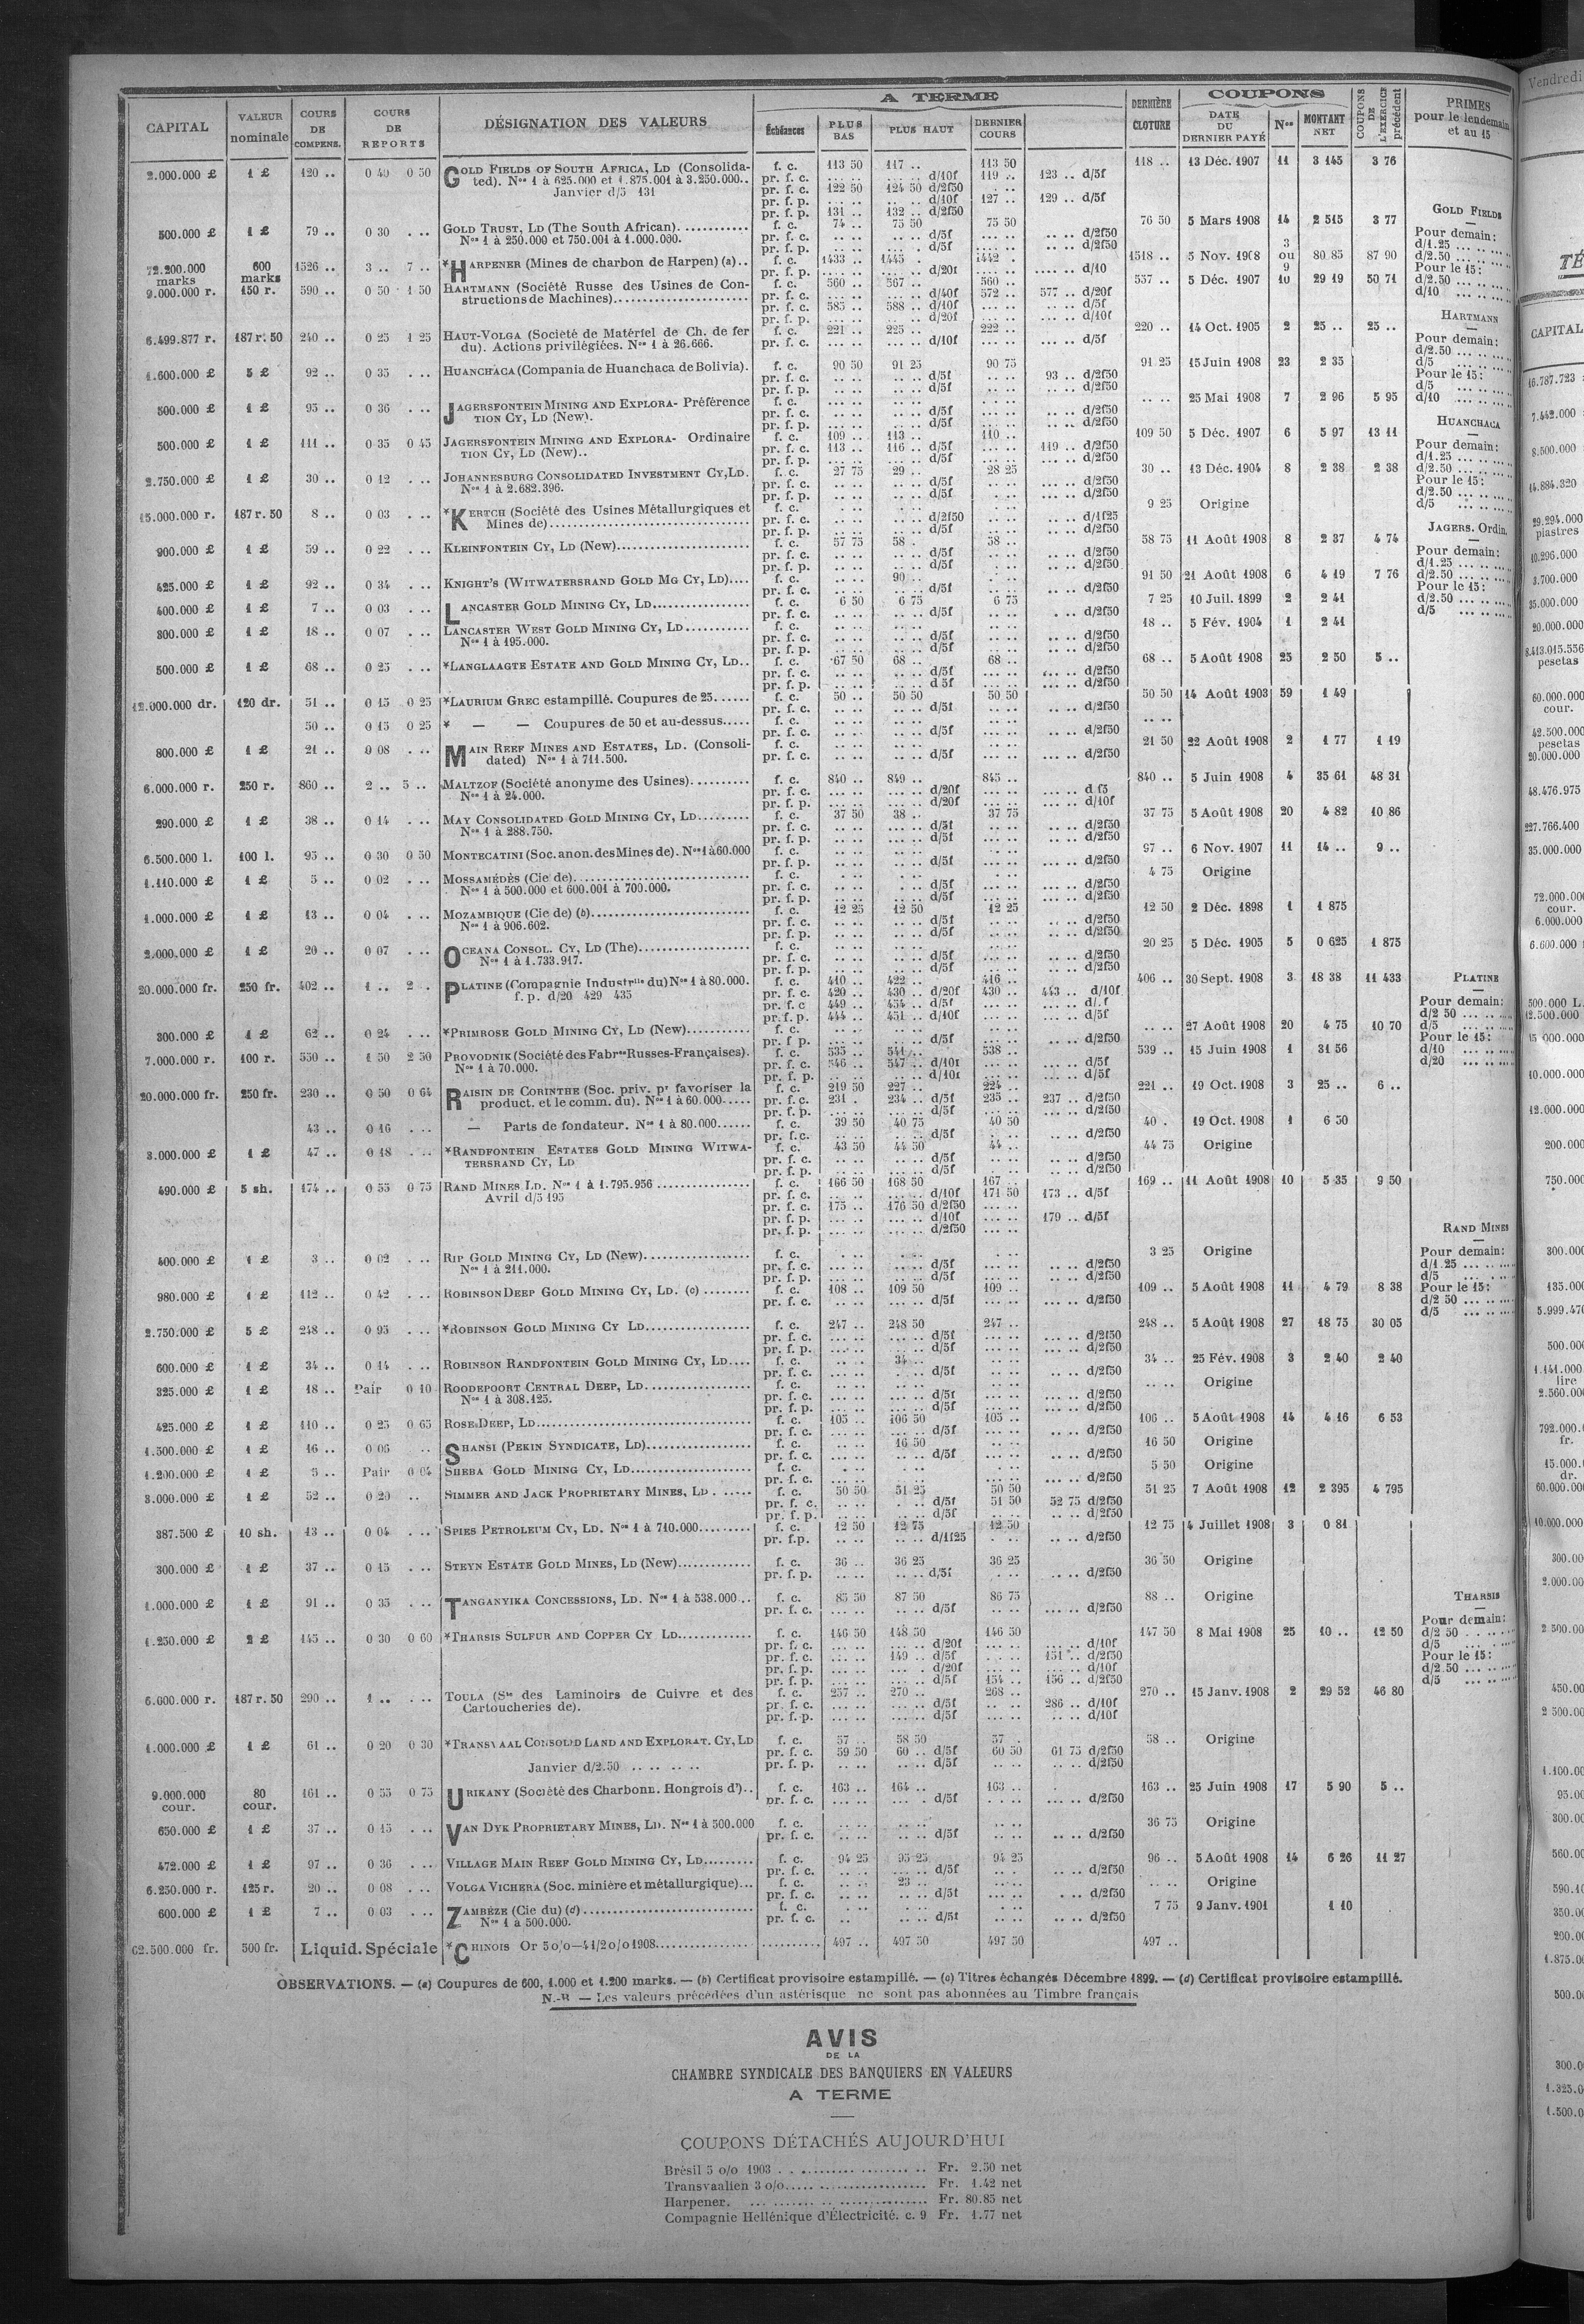 A TERME
COUPONS
CAPITAL
VALEUR nominale
COURS DE COMPENS.
COURS DE REPORTS
DÉSIGNATION DES VALEURS
Échéances
PLUS BAS
PLUS HAUT
DERNIER COURS
DERNIÈRE CLOTURE
DATE DU DERNIER PAYÉ
Nos
MONTANT NET
COUPONS DE L'EXERCICE précédent
PRIMES pour le lendemain et au 15
2.000.000 £ 1 £ 120 .. 0 40 0 50 GOLD FIELDS OF SOUTH AFRICA, LD (Consolida- f. c. 113 50 117 .. 113 50 118 .. 13 Déc. 1907 11 3 145 3 76
ted). Nos 1 à 625.000 et 1.875.001 à 3.250.000.. pr. f. c. d/10f 119 .. 123 .. d/5f
Janvier d/5 131 pr. f. c. 122 50 124 50 d/2f50
pr. f. p. d/10f 127 .. 129 .. d/5f
pr. f. p. 131 .. 132 .. d/2f50
500.000 £ 1 £ 79 .. 0 30 ... GOLD TRUST, LD (The South African) f. c. 74 .. 75 50 75 50 76 50 5 Mars 1908 14 2 515 3 77
Nos 1 à 250.000 et 750.001 à 1.000.000. pr. f. c. d/5f d/2f50
pr. f. p. d/5f d/2f50
72.200.000 marks 600 marks 1526 .. 3 .. 7 .. *HARPENER (Mines de charbon de Harpen) (a).. f. c. 1433 .. 1445 . 1442 . 1518 .. 5 Nov. 1908 3 ou 9 80 85 87 90
pr. f. p. d/20f d/10
9.000.000 r. 150 r. 590 .. 0 50 1 50 HARTMANN (Société Russe des Usines de Con- f. c. 560 .. 567 .. 560 .. 557 .. 5 Déc. 1907 10 29 19 50 71
structions de Machines) pr. f. c. d/40f 572 .. 577 .. d/20f
pr. f. c. 585 .. 588 .. d/10f d/5f
pr. f. p. d/20f d/10f
6.499.877 r. 187 r. 50 240 .. 0 25 1 25 HAUT-VOLGA (Société de Matériel de Ch. de fer f. c. 221 .. 225 .. 222 .. 220 .. 14 Oct. 1905 2 25 .. 25 ..
du). Actions privilégiées. Nos 1 à 26.666. pr. f. c. d/10f d/5f
1.600.000 £ 5 £ 92 .. 0 35 ... HUANCHACA (Compania de Huanchaca de Bolivia). f. c. 90 50 91 25 90 75 91 25 15 Juin 1908 23 2 35
pr. f. c. d/5f 93 .. d/2f50
pr. f. p. d/5f d/2f50
500.000 £ 1 £ 95 .. 0 36 ... JAGERSFONTEIN MINING AND EXPLORA- Préférence f. c. 25 Mai 1908 7 2 96 5 95
TION CY, LD (New). pr. f. c. d/5f d/2f50
pr. f. p. d/5f d/2f50
500.000 £ 1 £ 111 .. 0 35 0 45 JAGERSFONTEIN MINING AND EXPLORA- Ordinaire f. c. 109 .. 113 .. 110 .. 109 50 5 Déc. 1907 6 5 97 13 11
TION CY, LD (New).. pr. f. c. 113 .. 116 .. d/5f 119 .. d/2f50
pr. f. p. d/5f d/2f50
2.750.000 £ 1 £ 30 .. 0 12 ... JOHANNESBURG CONSOLIDATED INVESTMENT CY, LD. f. c. 27 75 29 .. 28 25 30 .. 13 Déc. 1904 8 2 38 2 38
Nos 1 à 2.682.396. pr. f. c. d/5f d/2f50
pr. f. p. d/5f d/2f50
15.000.000 r. 187 r. 50 8 .. 0 03 ... *KERTCH (Société des Usines Métallurgiques et f. c. 9 25 Origine
Mines de) pr. f. c. d/2f50 d/1f25
pr. f. p. d/5f d/2f50
900.000 £ 1 £ 59 .. 0 22 ... KLEINFONTEIN CY, LD (New) f. c. 57 75 58 . 58 .. 58 75 11 Août 1908 8 2 37 4 74
pr. f. c. d/5f d/2f50
pr. f. p. d/5f d/2f50
425.000 £ 1 £ 92 .. 0 34 ... KNIGHT'S (WITWATERSRAND GOLD MG CY, LD) f. c. 90 .. 91 50 21 Août 1908 6 4 19 7 76
pr. f. c. d/5f d/2f50
400.000 £ 1 £ 7 .. 0 03 ... LANCASTER GOLD MINING CY, LD f. c. 6 50 6 75 6 75 7 25 10 Juil. 1899 2 2 41
pr. f. c. d/5f d/2f50
300.000 £ 1 £ 18 .. 0 07 ... LANCASTER WEST GOLD MINING CY, LD f. c. 18 .. 5 Fév. 1904 1 2 41
Nos 1 à 195.000. pr. f. c. d/5f d/2f50
pr. f. p. d/5f d/2f50
500.000 £ 1 £ 68 .. 0 25 ... *LANGLAAGTE ESTATE AND GOLD MINING CY, LD.. f. c. 67 50 68 .. 68 .. 68 .. 5 Août 1908 25 2 50 5 ..
pr. f. c. d/5f d/2f50
pr. f. p. d 5f d/2f50
12.000.000 dr. 120 dr. 51 .. 0 15 0 25 *LAURIUM GREC estampillé. Coupures de 25 f. c. 50 .. 50 50 50 50 50 50 14 Août 1903 59 1 49
pr. f. c. d/5f d/2f50
50 .. 0 15 0 25 * — — Coupures de 50 et au-dessus f. c.
pr. f. c. d/5f d/2f50
800.000 £ 1 £ 21 .. 0 08 ... MAIN REEF MINES AND ESTATES, LD. (Consoli- f. c. 21 50 22 Août 1908 2 1 77 1 19
dated) Nos 1 à 711.500. pr. f. c. d/5f d/2f50
6.000.000 r. 250 r. 860 .. 2 .. 5 .. MALTZOF (Société anonyme des Usines) f. c. 840 .. 849 .. 845 .. 840 .. 5 Juin 1908 4 35 61 48 31
Nos 1 à 24.000. pr. f. c. d/20f d f5
pr. f. p. d/20f d/10f
290.000 £ 1 £ 38 .. 0 14 ... MAY CONSOLIDATED GOLD MINING CY, LD f. c. 37 50 38 .. 37 75 37 75 5 Août 1908 20 4 82 10 86
Nos 1 à 288.750. pr. f. c. d/5f d/2f50
pr. f. p. d/5f d/2f50
6.500.000 l. 100 l. 95 .. 0 30 0 50 MONTECATINI (Soc. anon. des Mines de). Nos 1 à 60.000 f. c. 97 .. 6 Nov. 1907 11 14 .. 9 ..
pr. f. p. d/5f d/2f50
1.110.000 £ 1 £ 5 .. 0 02 ... MOSSAMÉDÈS (Cie de) f. c. 4 75 Origine
Nos 1 à 500.000 et 600.001 à 700.000. pr. f. c. d/5f d/2f50
pr. f. p. d/5f d/2f50
1.000.000 £ 1 £ 13 .. 0 04 ... MOZAMBIQUE (Cie de) (b) f. c. 12 25 12 50 12 25 12 50 2 Déc. 1898 1 1 875
Nos 1 à 906.602. pr. f. c. d/5f d/2f50
pr. f. p. d/5f d/2f50
2.000.000 £ 1 £ 20 .. 0 07 ... OCEANA CONSOL. CY, LD (The) f. c. 20 25 5 Déc. 1905 5 0 625 1 875
Nos 1 à 1.733.917. pr. f. c. d/5f d/2f50
pr. f. p. d/5f d/2f50
20.000.000 fr. 250 fr. 402 .. 1 .. 2 . PLATINE (Compagnie Industrlle du) Nos 1 à 80.000. f. c. 410 .. 422 .. 416 .. 406 .. 30 Sept. 1908 3 18 38 11 433
f. p. d/20 429 435 pr. f. c. 420 .. 430 .. d/20f 430 .. 443 .. d/10f
pr. f. c 449 .. 454 .. d/5f
pr. f. p. 444 .. 451 .. d/10f d/5f
300.000 £ 1 £ 62 .. 0 24 ... *PRIMROSE GOLD MINING CY, LD (New) f. c. 27 Août 1908 20 4 75 10 70
pr. f p. d/5f d/2f50
7.000.000 r. 100 r. 550 .. 1 50 2 50 PROVODNIK (Société des Fabres Russes-Françaises). f. c. 535 .. 541 .. 538 .. 539 .. 15 Juin 1908 1 31 56
Nos 1 à 70.000. pr. f. c. 546 .. 547 .. d/10f d/5f
pr. f. p. d/10f d/5f
20.000.000 fr. 250 fr. 230 .. 0 50 0 64 RAISIN DE CORINTHE (Soc. priv. pr favoriser la f. c. 219 50 227 .. 224 .. 221 .. 19 Oct. 1908 3 25 .. 6 ..
product. et le comm. du). Nos 1 à 60.000 pr. f. c. 231 . 234 .. d/5f 235 .. 237 .. d/2f50
pr. f. p. d/5f d/2f50
43 .. 0 16 ... — Parts de fondateur. Nos 1 à 80.000 f. c. 39 50 40 75 40 50 40 . 19 Oct. 1908 1 6 50
pr. f. c. d/5f d/2f50
3.000.000 £ 1 £ 47 .. 0 18 ... *RANDFONTEIN ESTATES GOLD MINING WITWA- f. c. 43 50 44 50 44 .. 44 75 Origine
TERSRAND CY, LD pr. f. c. d/5f d/2f50
pr. f. p. d/5f d/2f50
490.000 £ 5 sh. 174 .. 0 55 0 75 RAND MINES LD. Nos 1 à 1.795.956 f. c. 166 50 168 50 167 .. 169 .. 11 Août 1908 10 5 35 9 50
Avril d/5 195 pr. f. c. d/10f 171 50 173 .. d/5f
pr. f. c. 175 .. 176 50 d/2f50
pr. f. p. d/10f 179 .. d/5f
pr. f. p. d/2f50
400.000 £ 1 £ 3 .. 0 02 ... RIP GOLD MINING CY, LD (New) f. c. 3 25 Origine
Nos 1 à 211.000. pr. f. c. d/5f d/2f50
pr. f. p. d/5f d/2f50
980.000 £ 1 £ 112 .. 0 42 ... ROBINSON DEEP GOLD MINING CY, LD. (c) f. c. 108 .. 109 50 109 .. 109 .. 5 Août 1908 11 4 79 8 38
pr. f. c. d/5f d/2f50
2.750.000 £ 5 £ 248 .. 0 95 ... *ROBINSON GOLD MINING CY LD f. c. 247 .. 248 50 247 .. 248 .. 5 Août 1908 27 18 75 30 05
pr. f. c. d/5f d/2f50
pr. f. p. d/5f d/2f50
600.000 £ 1 £ 34 .. 0 14 ... ROBINSON RANDFONTEIN GOLD MINING CY, LD f. c. 34 .. 34 .. 25 Fév. 1908 3 2 40 2 40
pr. f. c. d/5f d/2f50
325.000 £ 1 £ 18 .. Pair 0 10 ROODEPOORT CENTRAL DEEP, LD f. c. Origine
Nos 1 à 308.125. pr. f. c. d/5f d/2f50
pr. f. p. d/5f d/2f50
425.000 £ 1 £ 110 .. 0 25 0 65 ROSE DEEP, LD f. c. 105 .. 106 50 105 .. 106 .. 5 Août 1908 14 4 16 6 53
pr. f. c. d/5f d/2f50
1.500.000 £ 1 £ 16 .. 0 06 .. SHANSI (PEKIN SYNDICATE, LD) f. c. 16 50 16 50 Origine
pr. f. c. d/5f d/2f50
1.200.000 £ 1 £ 5 .. Pair 0 04 SHEBA GOLD MINING CY, LD f. c. 5 50 Origine
pr. f. c. d/2f50
3.000.000 £ 1 £ 52 .. 0 20 .. SIMMER AND JACK PROPRIETARY MINES, LD f. c. 50 50 51 25 50 50 51 25 7 Août 1908 12 2 395 4 795
pr. f. c. d/5f 51 50 52 75 d/2f50
pr. f. p. d/5f d/2f50
387.500 £ 10 sh. 13 .. 0 04 ... SPIES PETROLEUM CY, LD. Nos 1 à 710.000 f. c. 12 50 12 75 12 50 12 75 4 Juillet 1908 3 0 81
pr. f.p. d/1f25 d/2f50
300.000 £ 1 £ 37 .. 0 15 ... STEYN ESTATE GOLD MINES, LD (New) f. c. 36 .. 36 25 36 25 36 50 Origine
pr. f. p. d/5f d/2f50
1.000.000 £ 1 £ 91 .. 0 35 ... TANGANYIKA CONCESSIONS, LD. Nos 1 à 538.000 f. c. 85 50 87 50 86 75 88 .. Origine
pr. f. c. d/5f d/2f50
1.250.000 £ 2 £ 145 .. 0 30 0 60 *THARSIS SULFUR AND COPPER CY LD f. c. 146 50 148 50 146 50 147 50 8 Mai 1908 25 10 .. 12 50
pr. f. c. d/20f d/10f
pr. f. c. 149 .. d/5f 151 .. d/2f50
pr. f. p. d/20f d/10f
pr. f. p. d/5f 154 .. 156 .. d/2f50
6.000.000 r. 187 r. 50 290 .. 1 .. ... TOULA (Sté des Laminoirs de Cuivre et des f. c. 257 .. 270 .. 268 .. 270 .. 15 Janv. 1908 2 29 52 46 80
Cartoucheries de). pr. f. c. d/5f 286 .. d/10f
pr. f. p. d/5f d/10f
1.000.000 £ 1 £ 61 .. 0 20 0 30 *TRANSVAAL CONSOLID LAND AND EXPLORAT. CY, LD f. c. 57 .. 58 50 57 . 58 .. Origine
pr. f. c. 59 50 60 .. d/5f 60 50 61 75 d/2f50
Janvier d/2.50 pr. f. p. d/5f d/2f50
9.000.000 cour. 80 cour. 161 .. 0 55 0 75 URIKANY (Société des Charbonn. Hongrois d').. f. c. 163 .. 164 .. 163 .. 163 .. 25 Juin 1908 17 5 90 5 ..
pr. f. c. d/5f d/2f50
650.000 £ 1 £ 37 .. 0 15 ... VAN DYK PROPRIETARY MINES, LD. Nos 1 à 500.000 f. c. 36 75 Origine
pr. f. c. d/5f d/2f50
472.000 £ 1 £ 97 .. 0 36 ... VILLAGE MAIN REEF GOLD MINING CY, LD f. c. 94 25 95 25 94 25 96 .. 5 Août 1908 14 6 26 11 27
pr. f. c. d/5f d/2f50
6.250.000 r. 125 r. 20 .. 0 08 ... VOLGA VICHERA (Soc. minière et métallurgique) f. c. 23 .. Origine
pr. f. c. d/5f d/2f50
600.000 £ 1 £ 7 .. 0 03 ... ZAMBÈZE (Cie du) (d) f. c. 7 75 9 Janv. 1901 1 10
Nos 1 à 500.000. pr. f. c. d/5f d/2f50
62.500.000 fr. 500 fr. Liquid. Spéciale *CHINOIS Or 5 o/o—4 1/2 o/o 1908 497 .. 497 50 497 50 497 ..
GOLD FIELDS
Pour demain:
d/1.25
d/2.50
Pour le 15:
d/2.50
d/10
HARTMANN
Pour demain:
d/2.50
d/5
Pour le 15:
d/5
d/10
HUANCHACA
Pour demain:
d/1.25
d/2.50
Pour le 15:
d/2.50
d/5
JAGERS. Ordin.
Pour demain:
d/1.25
d/2.50
Pour le 15:
d/2.50
d/5
PLATINE
Pour demain:
d/2 50
d/5
Pour le 15:
d/10
d/20
RAND MINES
Pour demain:
d/1.25
d/5
Pour le 15:
d/2 50
d/5
THARSIS
Pour demain:
d/2 50
d/5
Pour le 15:
d/2.50
d/5
OBSERVATIONS. — (a) Coupures de 600, 1.000 et 1.200 marks. — (b) Certificat provisoire estampillé. — (c) Titres échangés Décembre 1899. — (d) Certificat provisoire estampillé.
N.-B — Les valeurs précédées d'un astérisque ne sont pas abonnées au Timbre français
AVIS
DE LA
CHAMBRE SYNDICALE DES BANQUIERS EN VALEURS
A TERME
COUPONS DÉTACHÉS AUJOURD'HUI
Brésil 5 o/o 1903 Fr. 2.50 net
Transvaalien 3 o/o Fr. 1.42 net
Harpener. Fr. 80.85 net
Compagnie Hellénique d'Électricité. c. 9 Fr. 1.77 net
Vendredi
TÉ
CAPITAL
16.787.723
7.442.000
8.500.000
14.884.320
29.294.000
piastres
10.296.000
3.700.000
35.000.000
20.000.000
8.413.015.556
pesetas
60.000.000
cour.
42.500.000
pesetas
20.000.000
48.476.975
227.766.400
35.000.000
72.000.000
cour.
6.000.000
6.600.000
500.000 L.
12.500.000
15 000.000
10.000.000
12.000.000
200.000
750.000
300.000
135.000
5.999.470
500.000
1.141.000
lire
2.560.000
792.000.
fr.
15.000.
dr.
60.000.000
10.000.000
300.00
2.000.00
2 500.00
450.00
2 500.00
1.100.00
95.00
300.00
560.00
590.40
350.00
200.00
1.875.00
500.00
300.0
1.325.0
1.500.0